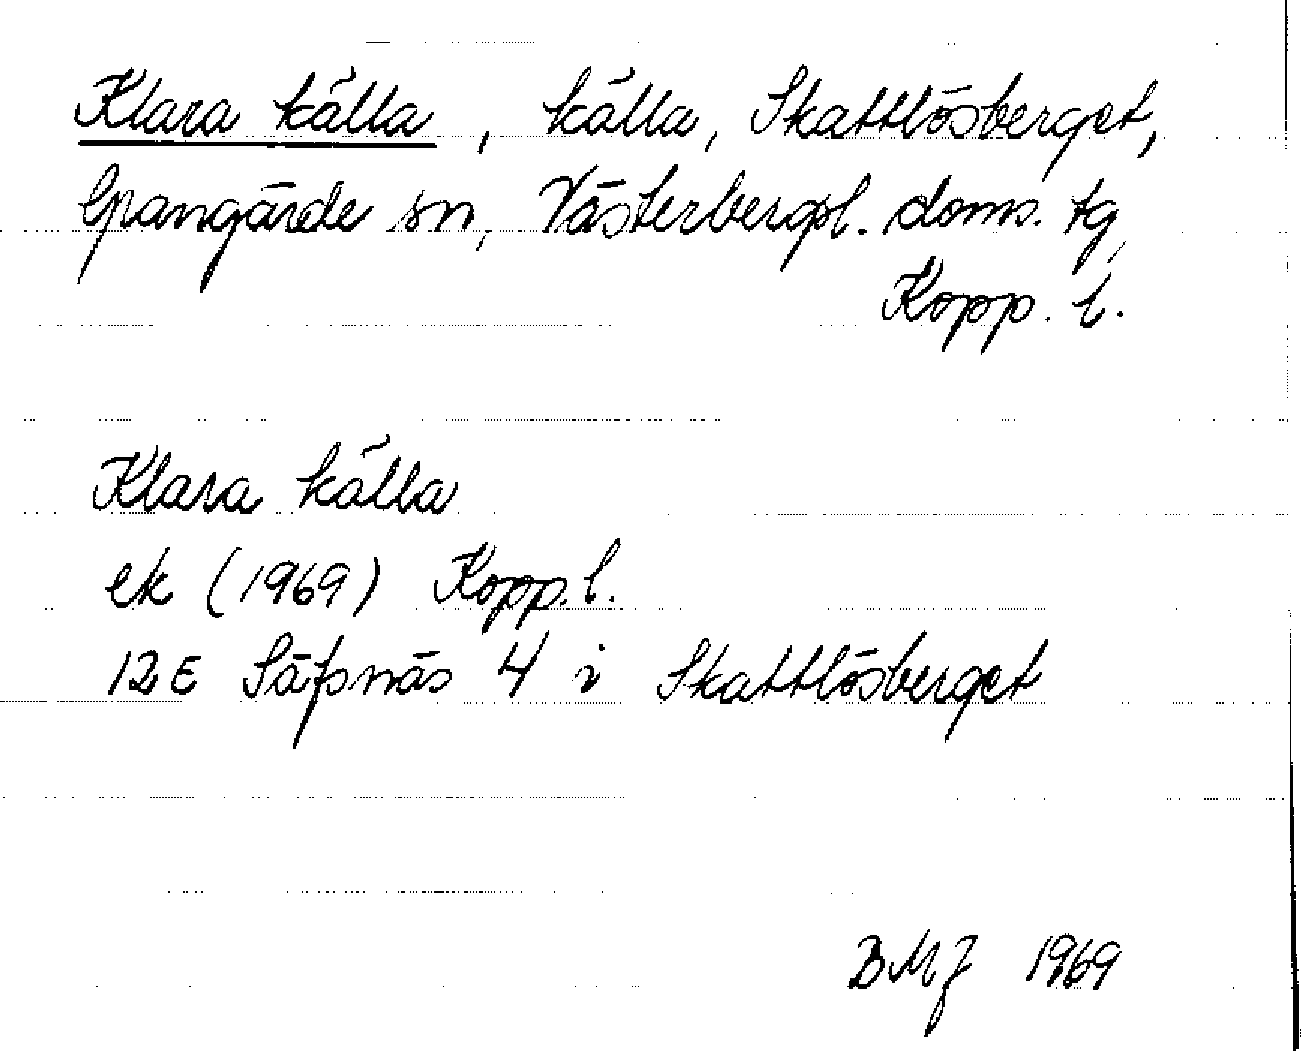 Klara källa, källa, Skattlösberget,
Grangärde sn, Västerbergsl. doms. tg,
Kopp. l.
Klara källa
ek (1969) Kopp. l.
12 E Säfsnäs 4 i Skattlösberget
BMJ 1969